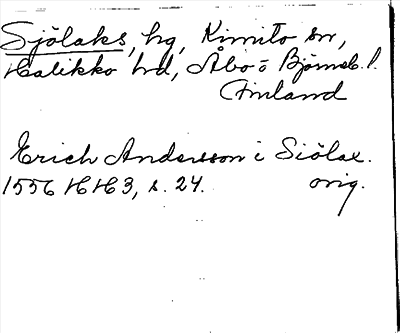 Sjölaks, hg, Kimito sn,
Halikko hd, Åbo o Björneb. l.
Finland
Erich Andersson i Siölax.
1556 HH3, s. 24. orig.